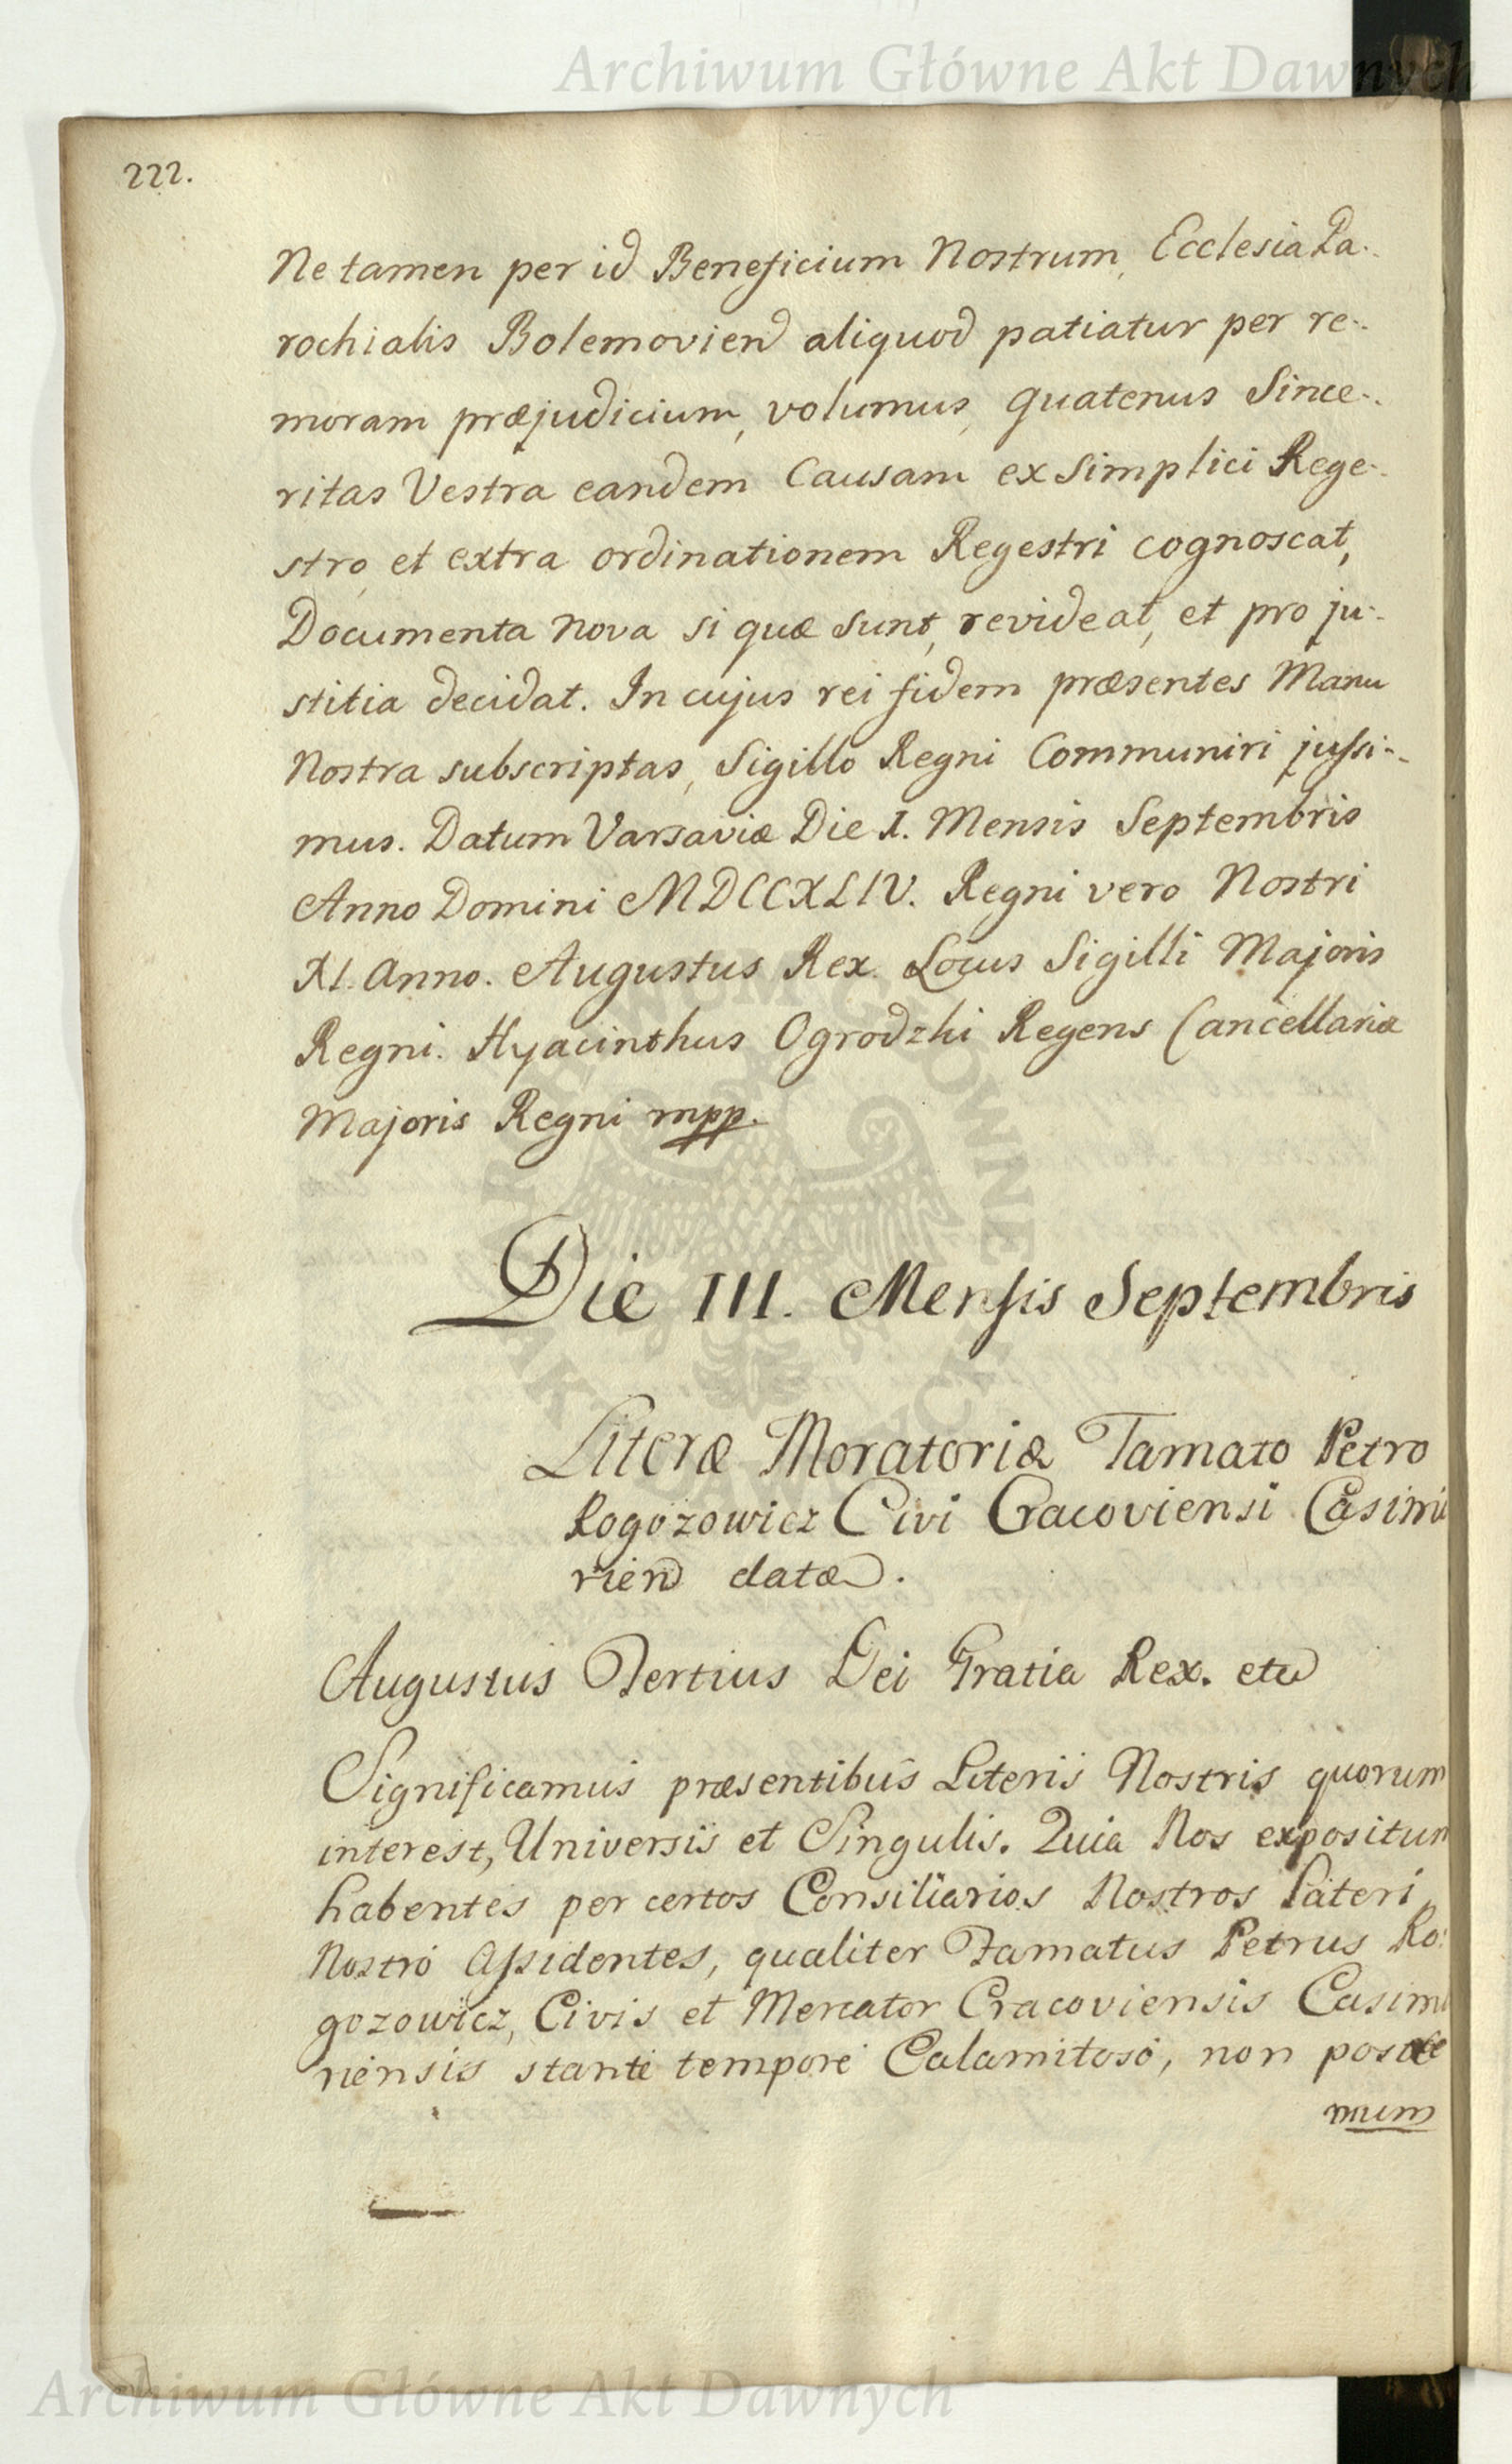 Archiwum Główne Akt Dawnych
222.
Ne tamen per id Beneficium Nostrum, Ecclesia Pa-
rochialis Bolemovien aliquod patiatur per re-
moram præjudicium, volumus, quatenus Since-
ritas Vestra eandem Causam ex simplici Rege-
stro, et extra ordinationem Regestri cognoscat,
Documenta nova si quæ sunt, revideat, et pro ju-
stitia decidat. In cujus rei fidem præsentes Manu
Nostra subscriptas, Sigillo Regni Communiri jussi-
mus. Datum Varsaviæ Die I. Mensis Septembris
Anno Domini MDCCXLIV. Regni vero Nostri
XI. Anno. Augustus Rex. Locus Sigilli Majoris
Regni. Hyacinthus Ogrodzki Regens Cancellariæ
Majoris Regni mpp.
Die III. Mensis Septembris
Literæ Moratoriæ Famato Petro
Rogozowicz Civi Cracoviensi Casimi
rien datæ.
Augustus Tertius Dei Gratia Rex. etc
Significamus præsentibus Literis Nostris quorum
interest, Universis et Singulis. Quia Nos expositum
habentes per certos Consiliarios Nostros Lateri
Nostro Assidentes, qualiter Famatus Petrus Ro:
gozowicz, Civis et Mercator Cracoviensis Casimi
riensis stante tempore Calamitoso, non posite
mum
ARCHIWUM GŁÓWNE AKT DAWNYCH
Archiwum Główne Akt Dawnych